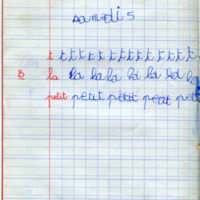 samedi 5
t t t t t t t t t t t t t
B la la la la la la la la
petit petit petit petit pet